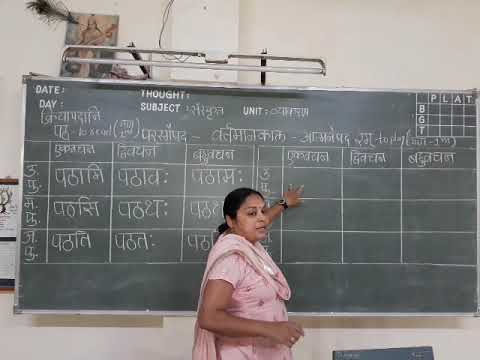 DATE:
THOUGHT:
PLAT
DAY:
SUBJECT: संस्कृत UNIT: व्याकरण
B
G
T
क्रियापदानि
पठ् - to read
परस्मैपद - वर्तमानकाल - आत्मनेपद रम् - to play
एकवचन द्विवचन बहुवचन एकवचन द्विवचन बहुवचन
उ. पु. पठामि पठावः पठामः उ. पु.
म. पु. पठसि पठथः पठथ
पठति पठतः